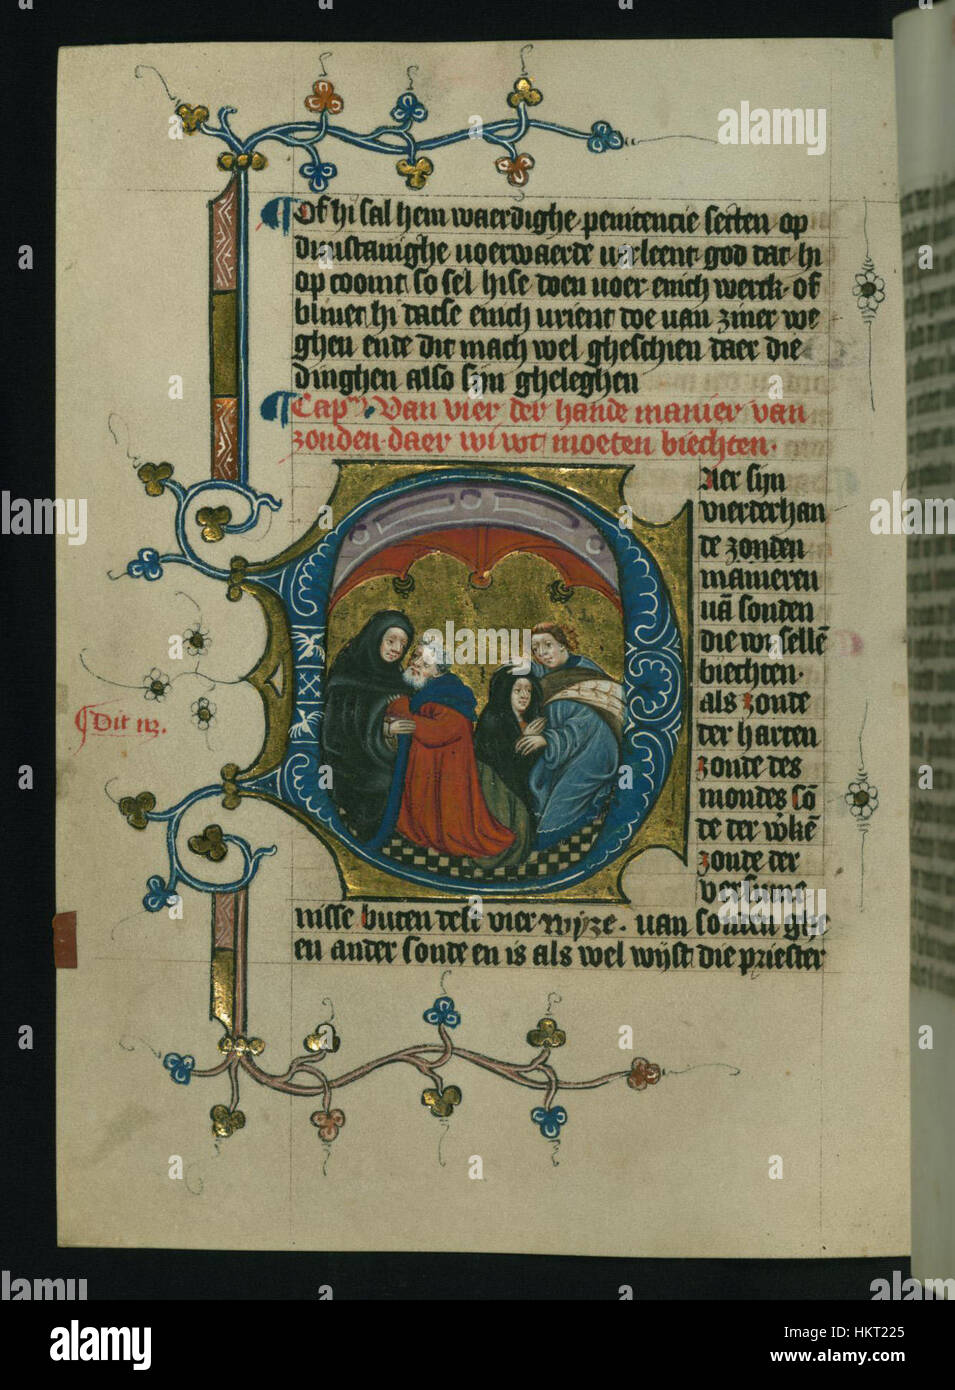 Of hi sal hem waerdighe penitencie setten op
dieustauighe voerwaerde verleent god dat hi
op coomt so sel hise doen voer enich werck · of
bliuet hi datse enich vrient doe van ziner we
ghen ende dit mach wel gheschien daer die
dinghen also sijn gheleghen
Cap. Van vier der hande manier van
zonden · daer wi wt moeten biechten ·
Aer sijn
vierderhan
de zonden
manieren
vā sonden
die wi sellē
biechten ·
als zonde
der harten
zonde des
¶ Dit iiz.
mondes sō
de der w̄kē
zonde der
versume
nisse buten dese vier wijze · van sonden ghe
en ander sonde en is als wel wijst die priester
alamy
Image ID: HKT225
www.alamy.com